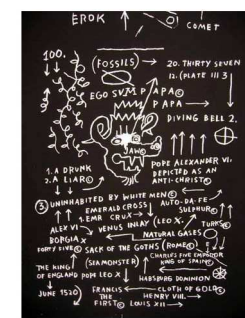 EROK
COMET
100.
(FOSSILS) → 20. THIRTY SEVEN
12. (PLATE III 3)
EGO SVM PAPA©
PAPA →
DIVING BELL 2.
JAW©
POPE ALEXANDER VI.
DEPICTED AS AN
ANTI-CHRIST©
1. A DRUNK
2. A LIAR©
③ UNINHABITED BY WHITE MEN©
EMERALD CROSS
AUTO-DA-FE
SULPHUR©
1. EMR CRUX →
ALEX VI
VENUS INLAY (LEO X)
TURKS©
BORGIA X
NATURAL GASES
FORTY FIVE©
SACK OF THE GOTHS (ROME©)
THE KING
OF ENGLAND
(SEAMONSTER)
POPE LEO X
CHARLES FIVE EMPEROR
KING OF SPAIN
HABSBURG DOMINION
JUNE 1520
FRANCIS ← CLOTH OF GOLD
THE FIRST©
HENRY VIII. →
LOUIS XII →